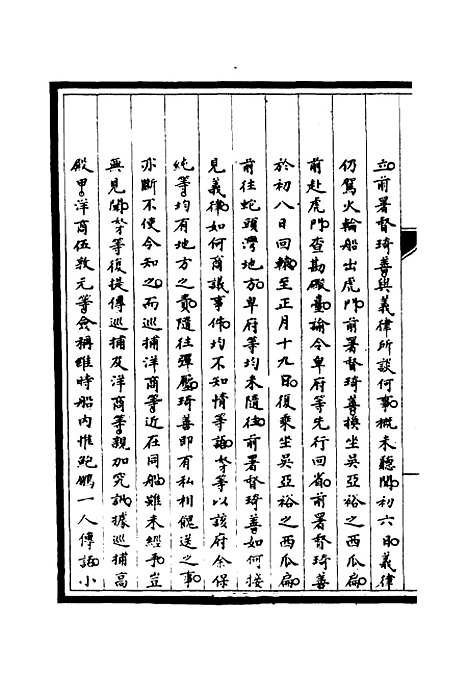 立前署督琦善與義律所談何事概未聽聞初六日義律
仍駕火輪船出虎門前署督琦善換坐吳亞裕之西瓜扁
前赴虎門查勘礮臺諭令卑府等先行回省前署督琦善
於初八日回轅至正月十九日復乘坐吳亞裕之西瓜扁
前往蛇頭灣地方卑府等均未隨往前署督琦善如何接
見義律如何商議事件均不知情等語奴等以該府余保
純等均有地方之責隨往彈壓琦善即有私相餽送之事
亦斷不使令知之而巡捕洋商等近在同船雖未經手豈
無見聞奴等復提傳巡捕及洋商等親加究詰據巡捕高
殿甲洋商伍敦元等僉稱維時船內惟鮑鵬一人傳話小